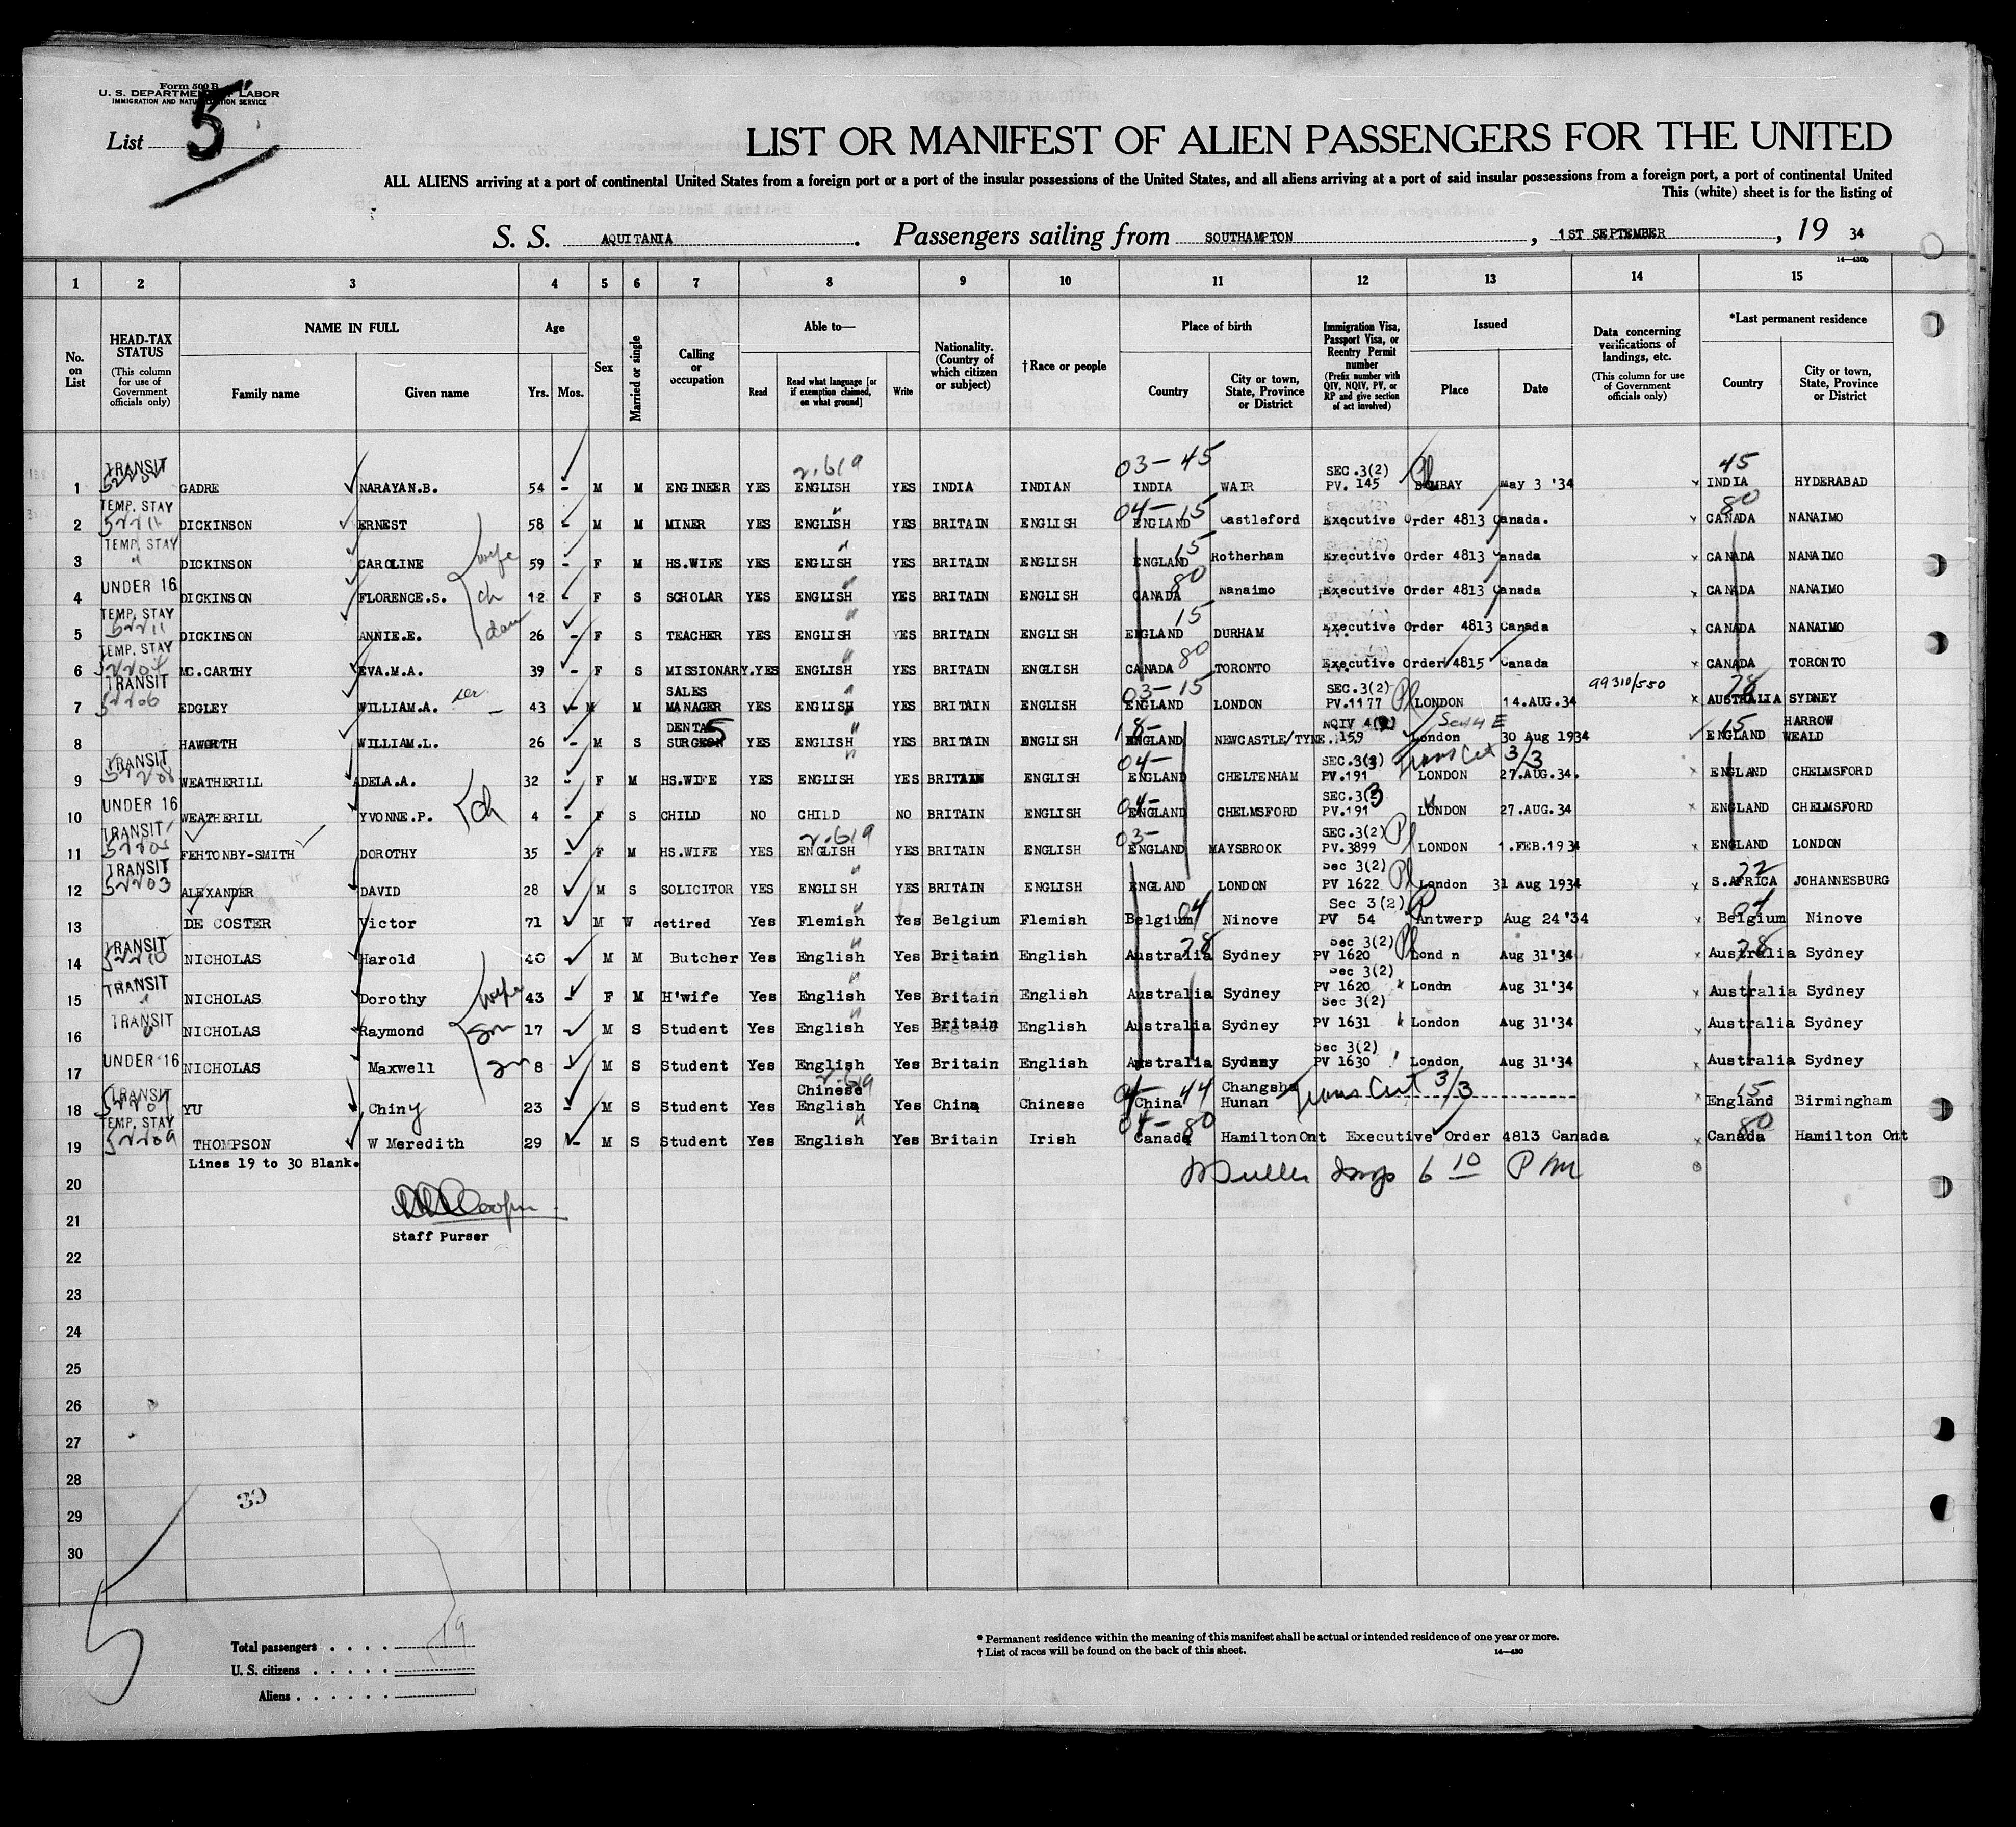 Form 500 B
U. S. DEPARTMENT OF LABOR
IMMIGRATION AND NATURALIZATION SERVICE
List 5
LIST OR MANIFEST OF ALIEN PASSENGERS FOR THE UNITED
ALL ALIENS arriving at a port of continental United States from a foreign port or a port of the insular possessions of the United States, and all aliens arriving at a port of said insular possessions from a foreign port, a port of continental United
This (white) sheet is for the listing of
S. S. AQUITANIA. Passengers sailing from SOUTHAMPTON, 1ST SEPTEMBER, 19 34
14—430b
1 2 3 4 5 6 7 8 9 10 11 12 13 14 15
No. on List
HEAD-TAX STATUS (This column for use of Government officials only)
NAME IN FULL Family name Given name
Age Yrs. Mos.
Sex
Married or single
Calling or occupation
Able to— Read Read what language [or if exemption claimed, on what ground] Write
Nationality. (Country of which citizen or subject)
†Race or people
Place of birth Country City or town, State, Province or District
Immigration Visa, Passport Visa, or Reentry Permit number (Prefix number with QIV, NQIV, PV, or RP and give section of act involved)
Issued Place Date
Data concerning verifications of landings, etc. (This column for use of Government officials only)
*Last permanent residence Country City or town, State, Province or District
TRANSIT 2.619 03-45 SEC.3(2) 45
1 GADRE NARAYAN.B. 54 - M M ENGINEER YES ENGLISH YES INDIA INDIAN INDIA WAIR PV. 145 BOMBAY May 3 '34 INDIA HYDERABAD
TEMP. STAY 52211 " 04-15 80
2 DICKINSON ERNEST 58 - M M MINER YES ENGLISH YES BRITAIN ENGLISH ENGLAND Castleford Executive Order 4813 Canada. CANADA NANAIMO
TEMP. STAY " wife " 15
3 DICKINSON CAROLINE 59 - F M HS.WIFE YES ENGLISH YES BRITAIN ENGLISH ENGLAND Rotherham Executive Order 4813 Canada CANADA NANAIMO
UNDER 16 ch " 80
4 DICKINSON FLORENCE.S. 12 - F S SCHOLAR YES ENGLISH YES BRITAIN ENGLISH CANADA Nanaimo Executive Order 4813 Canada CANADA NANAIMO
TEMP. STAY 52211 dau " 15
5 DICKINSON ANNIE.E. 26 - F S TEACHER YES ENGLISH YES BRITAIN ENGLISH ENGLAND DURHAM Executive Order 4813 Canada CANADA NANAIMO
TEMP. STAY " 80
6 MC.CARTHY EVA.M.A. 39 - F S MISSIONARY.YES ENGLISH YES BRITAIN ENGLISH CANADA TORONTO Executive Order 4815 Canada CANADA TORONTO
TRANSIT 52206 SALES " 03-15 SEC.3(2) Pl 99310/550 78
7 EDGLEY WILLIAM.A. 43 - M M MANAGER YES ENGLISH YES BRITAIN ENGLISH ENGLAND LONDON PV.1177 LONDON 14.AUG.34 AUSTRALIA SYDNEY
DENTAL 5 " 18- NQIV 4(2) 15 HARROW
8 HAWORTH WILLIAM.L. 26 - M S SURGEON YES ENGLISH YES BRITAIN ENGLISH ENGLAND NEWCASTLE/TYNE. 159 London 30 Aug 1934 ENGLAND WEALD
TRANSIT 52208 " 04- SEC.3(3) Trans Cert 3/3
9 WEATHERILL ADELA.A. 32 - F M HS.WIFE YES ENGLISH YES BRITAIN ENGLISH ENGLAND CHELTENHAM PV.191 LONDON 27.AUG.34. ENGLAND CHELMSFORD
UNDER 16 ch 04- SEC.3(3
10 WEATHERILL YVONNE.P. 4 - F S CHILD NO CHILD NO BRITAIN ENGLISH ENGLAND CHELMSFORD PV.191 LONDON 27.AUG.34 ENGLAND CHELMSFORD
TRANSIT 52205 2.619 03- SEC.3(2) Pl
11 FEHTONBY-SMITH DOROTHY 35 - F M HS.WIFE YES ENGLISH YES BRITAIN ENGLISH ENGLAND MAYSBROOK PV.3899 LONDON 1.FEB.1934 ENGLAND LONDON
TRANSIT 52203 " Sec 3(2) Pl 22
12 ALEXANDER DAVID 28 M S SOLICITOR YES ENGLISH YES BRITAIN ENGLISH ENGLAND LONDON PV 1622 London 31 Aug 1934 S.AFRICA JOHANNESBURG
" 04 Sec 3(2) 04
13 DE COSTER Victor 71 M W retired Yes Flemish Yes Belgium Flemish Belgium Ninove PV 54 Antwerp Aug 24 '34 Belgium Ninove
TRANSIT 52210 " 78 Sec 3(2) Pl 78
14 NICHOLAS Harold 40 M M Butcher Yes English Yes Britain English Australia Sydney PV 1620 Lond n Aug 31'34 Australia Sydney
TRANSIT " wife " Sec 3(2)
15 NICHOLAS Dorothy 43 - F M H'wife Yes English Yes Britain English Australia Sydney PV 1620 Londn Aug 31'34 Australia Sydney
TRANSIT " son " Sec 3(2)
16 NICHOLAS Raymond 17 M S Student Yes English Yes Britain English Australia Sydney PV 1631 London Aug 31'34 Australia Sydney
UNDER 16 son Sec 3(2)
17 NICHOLAS Maxwell 8 M S Student Yes English Yes Britain English Australia Sydney PV 1630 London Aug 31'34 Australia Sydney
TRANSIT Chinese 2.619 04-44 Changsha Trans Cert 3/3 15
18 YU Chiny 23 - M S Student Yes English Yes China Chinese China Hunan England Birmingham
TEMP. STAY 52209 " 04-80 80
19 THOMPSON W Meredith 29 - M S Student Yes English Yes Britain Irish Canada Hamilton Ont Executive Order 4813 Canada Canada Hamilton Ont
Lines 19 to 30 Blank.
Muller Insp 6 10 P M
20
21
Staff Purser
22
23
24
25
26
27
28
39
29
30
5
Total passengers . . . . 19
U. S. citizens . . . . .
Aliens . . . . . .
* Permanent residence within the meaning of this manifest shall be actual or intended residence of one year or more.
† List of races will be found on the back of this sheet.
14—430